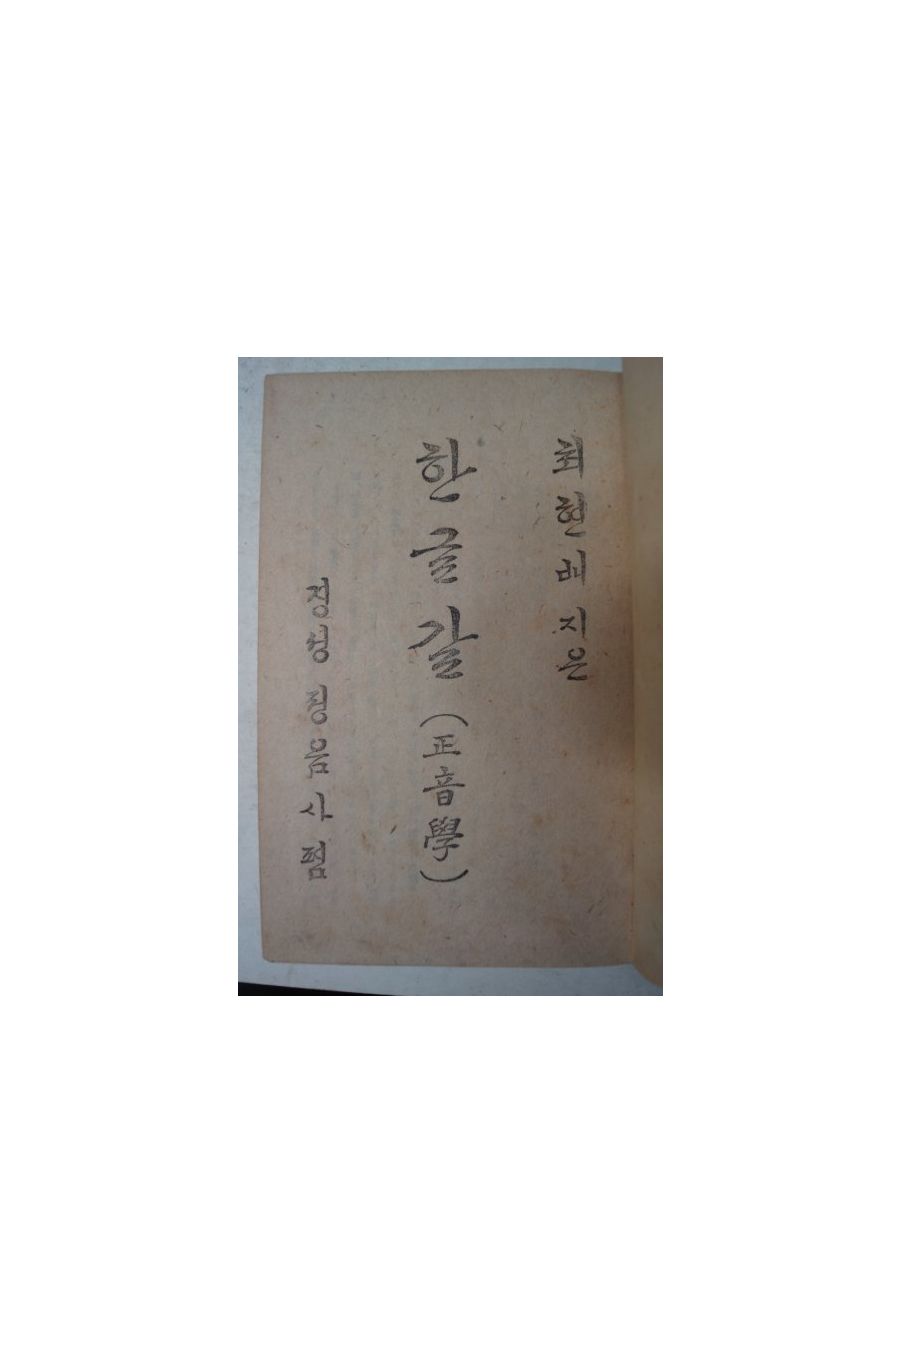 최현배 지은
한글갈(正音學)
경성 정음사 펌